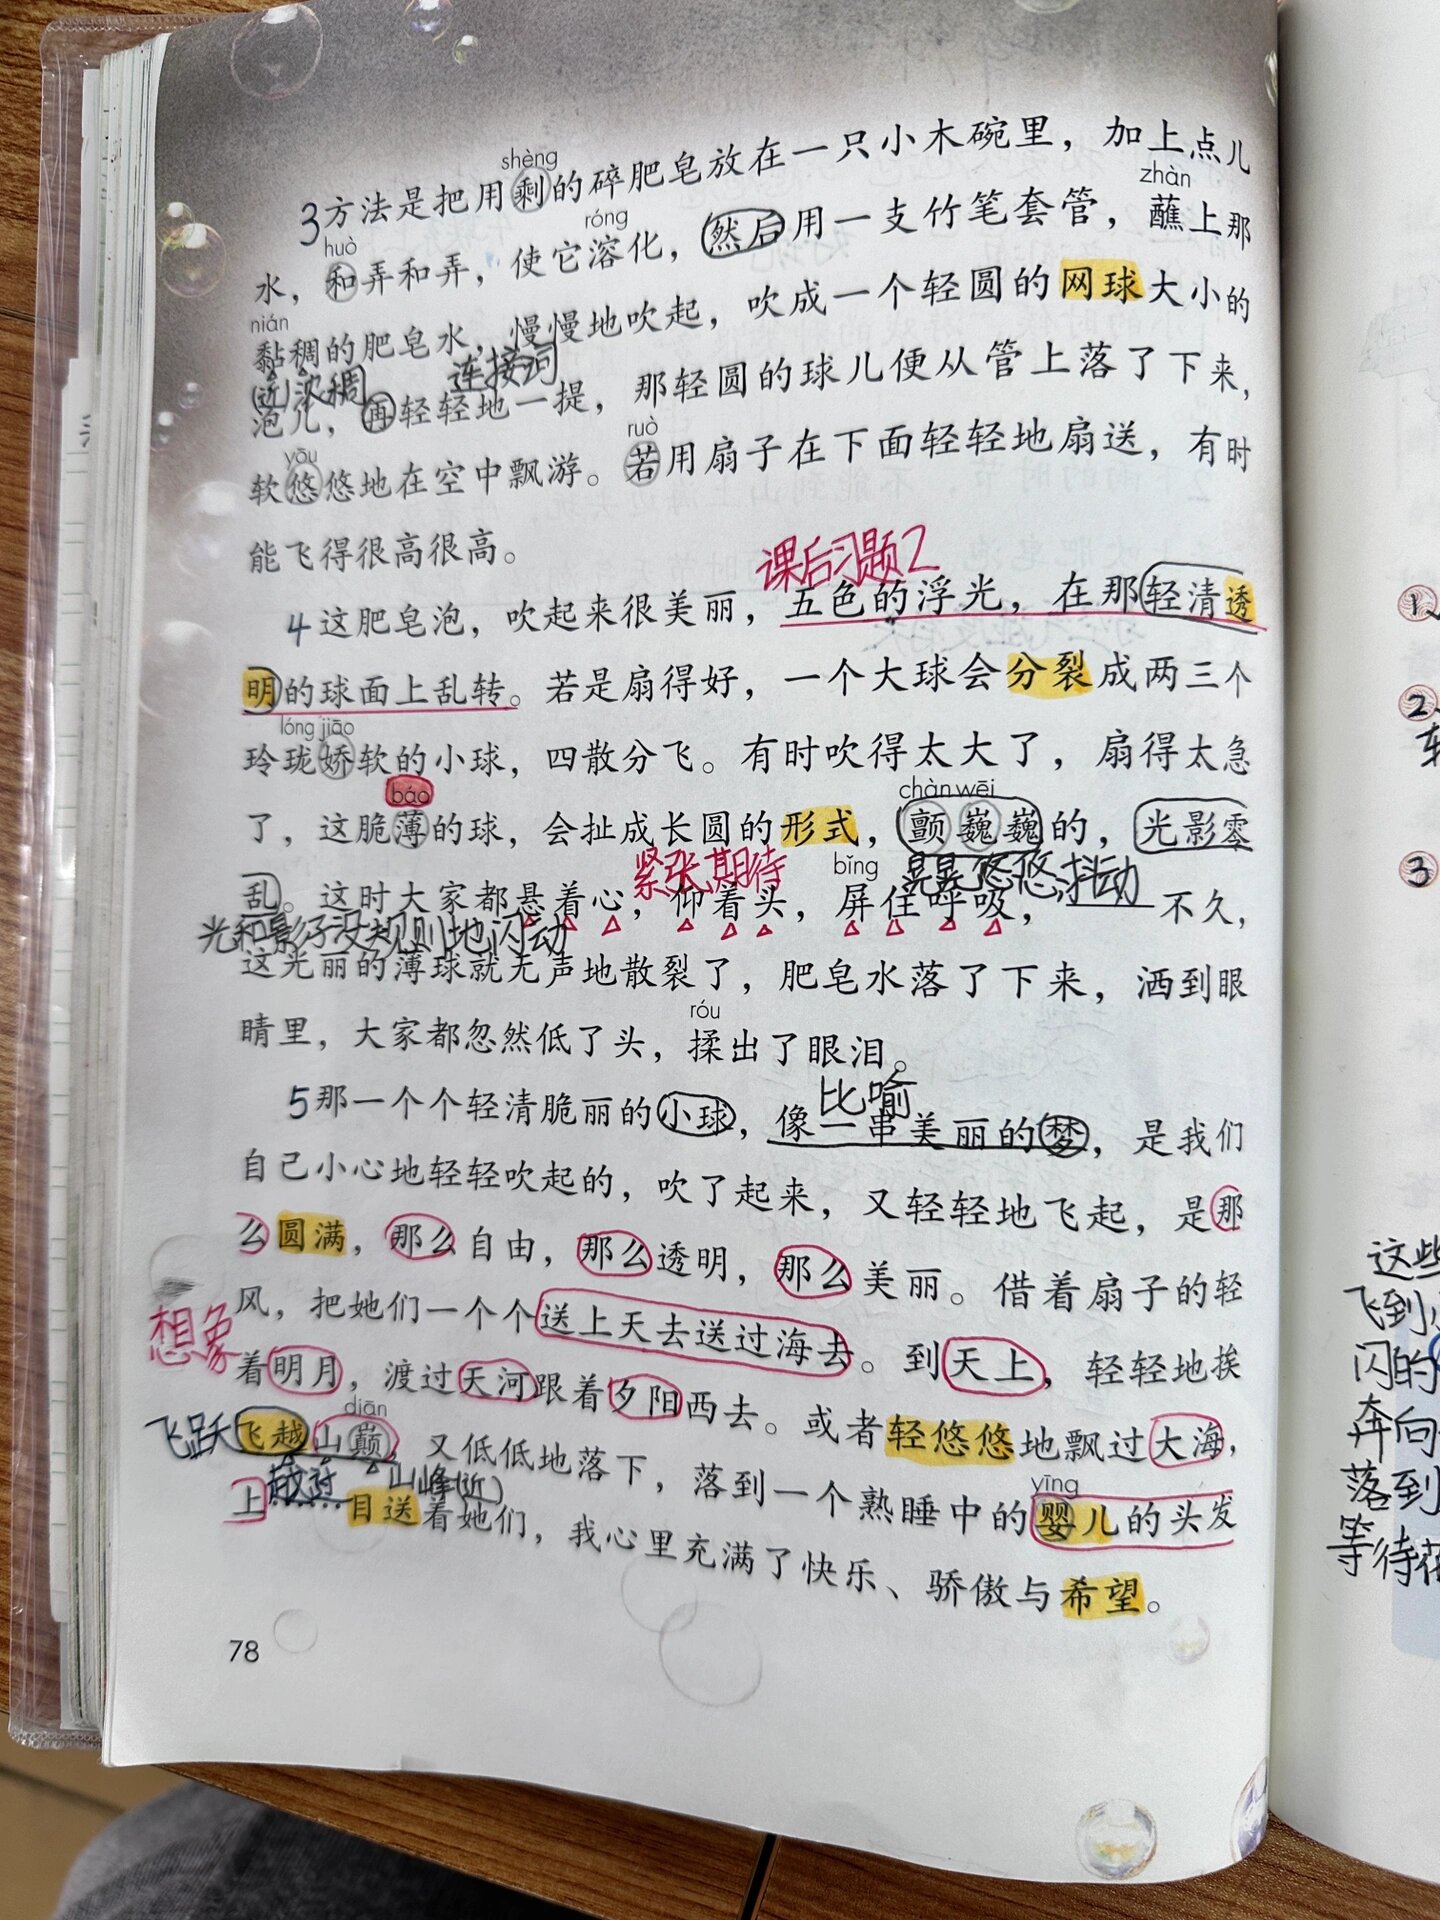 shèng
3方法是把用剩的碎肥皂放在一只小木碗里，加上点儿
huò róng zhàn
水，和弄和弄，使它溶化，然后用一支竹笔套管，蘸上那
nián
黏稠的肥皂水，慢慢地吹起，吹成一个轻圆的网球大小的
(近)浓稠 连接词
泡儿，再轻轻地一提，那轻圆的球儿便从管上落了下来，
yōu ruò
软悠悠地在空中飘游。若用扇子在下面轻轻地扇送，有时
能飞得很高很高。
课后习题2
4这肥皂泡，吹起来很美丽，五色的浮光，在那轻清透
明的球面上乱转。若是扇得好，一个大球会分裂成两三个
lóng jiāo
玲珑娇软的小球，四散分飞。有时吹得太大了，扇得太急
báo chàn wēi
了，这脆薄的球，会扯成长圆的形式，颤巍巍的，光影零
紧张,期待 bǐng 晃晃悠悠,抖动
乱。这时大家都悬着心，仰着头，屏住呼吸，不久，
光和影子没规则地闪动
这光丽的薄球就无声地散裂了，肥皂水落了下来，洒到眼
róu
睛里，大家都忽然低了头，揉出了眼泪。
比喻
5那一个个轻清脆丽的小球，像一串美丽的梦，是我们
自己小心地轻轻吹起的，吹了起来，又轻轻地飞起，是那
么圆满，那么自由，那么透明，那么美丽。借着扇子的轻
风，把她们一个个送上天去送过海去。到天上，轻轻地挨
想象
着明月，渡过天河跟着夕阳西去。或者轻悠悠地飘过大海，
diān
飞跃
飞越山巅，又低低地落下，落到一个熟睡中的婴儿的头发
越过 山峰(近) yīng
上 目送着她们，我心里充满了快乐、骄傲与希望。
78
1、
2、
3
这些
飞到
闪的
奔向
落到
等待